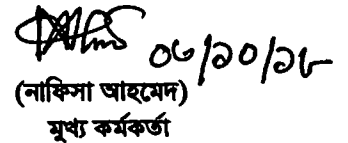 ০৩/১০/১৮
(নাফিসা আহমেদ)
মুখ্য কর্মকর্তা